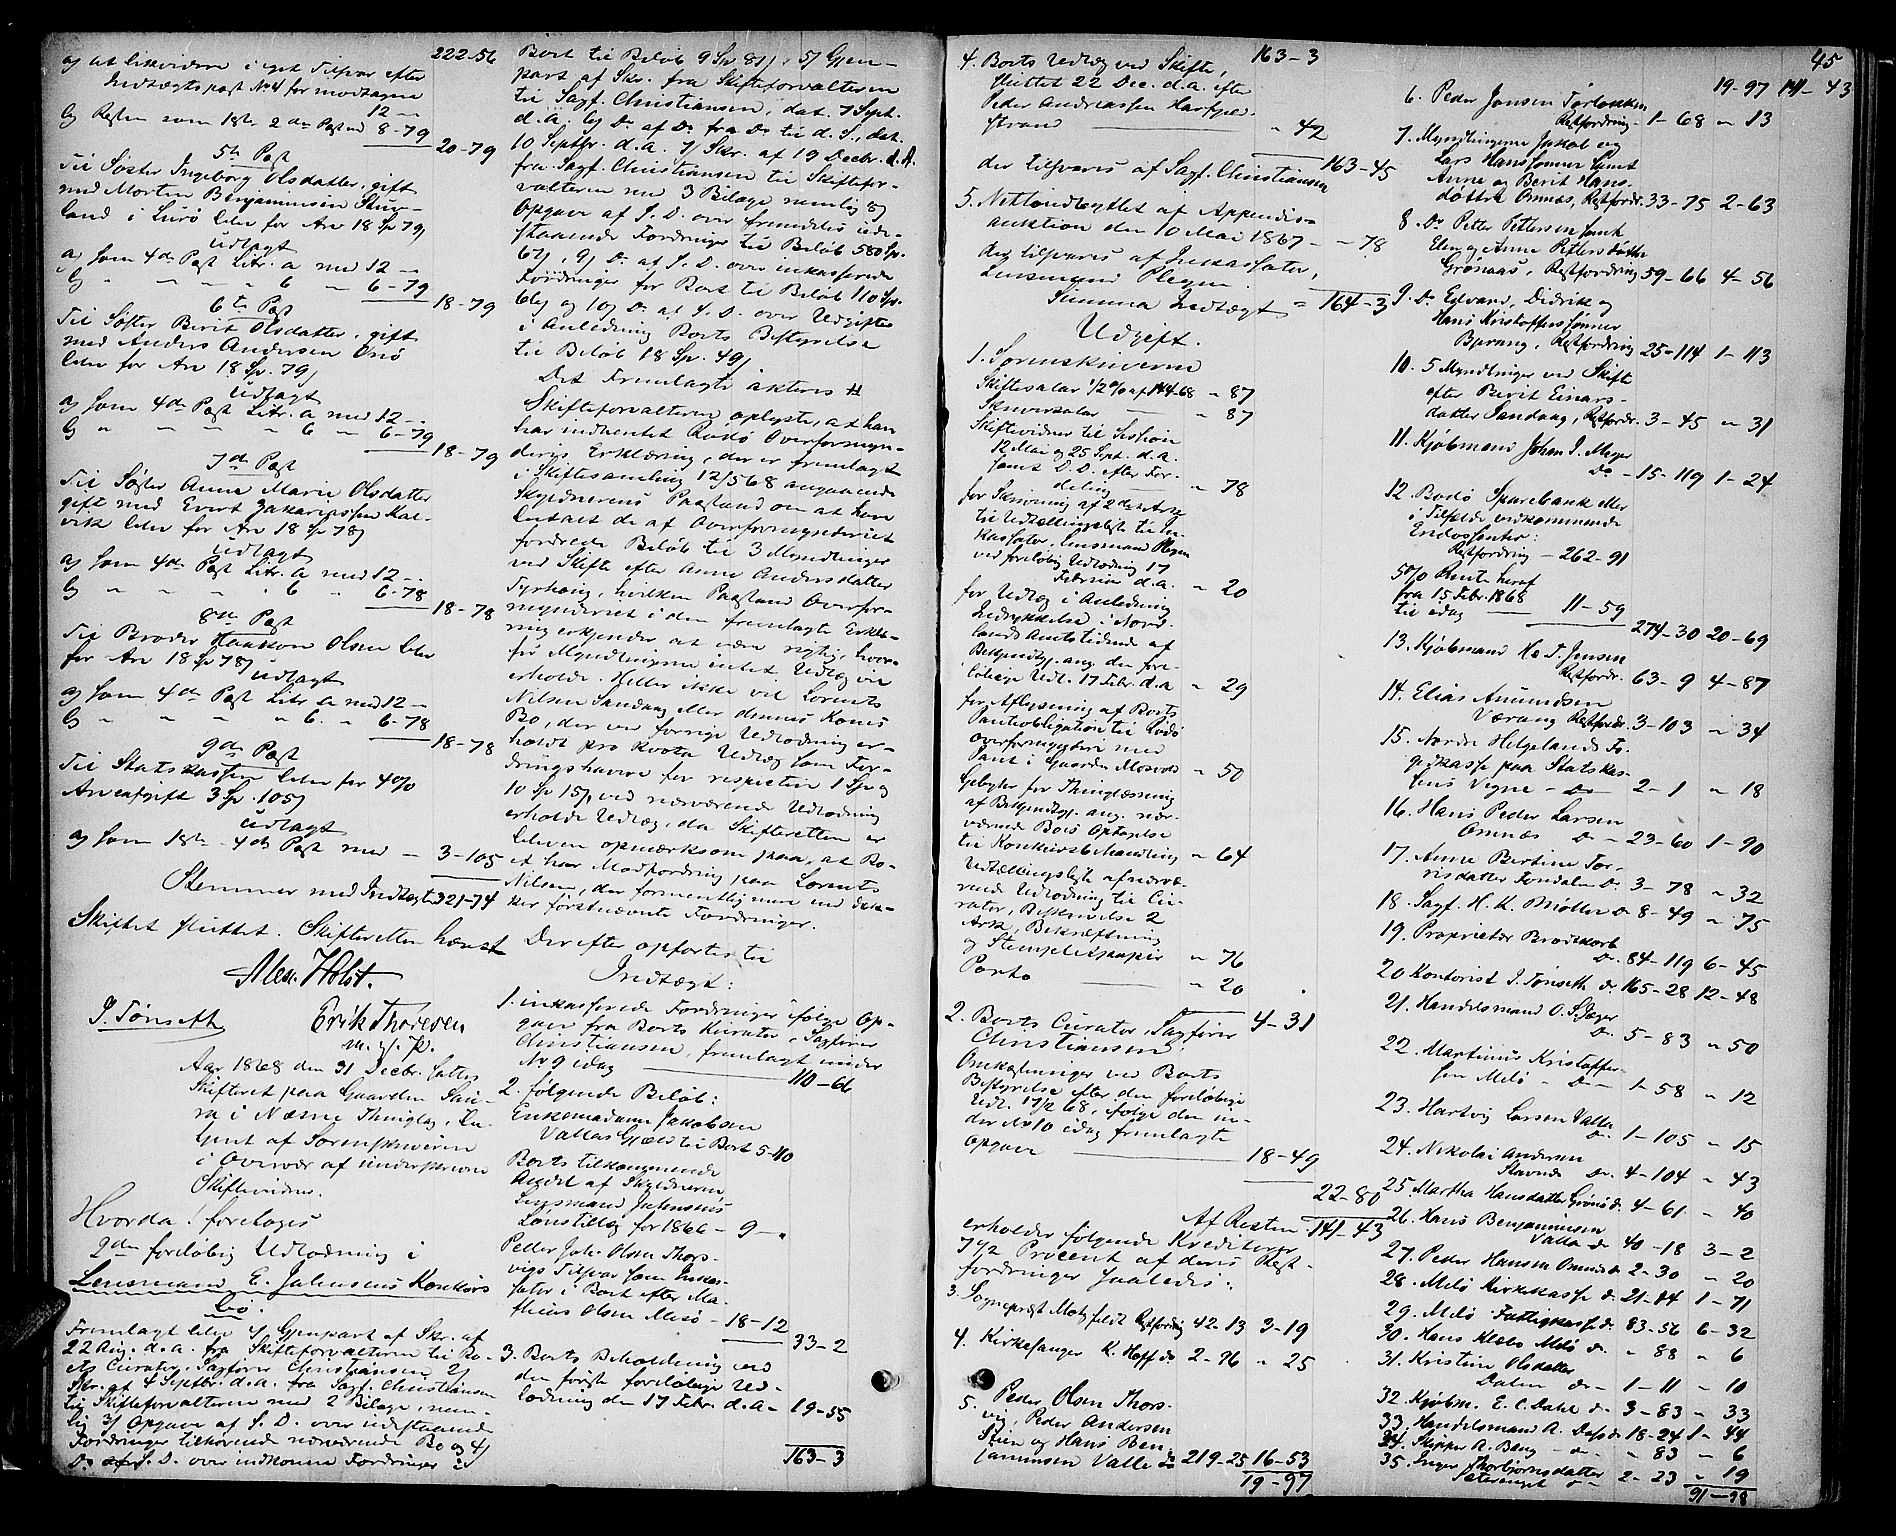 222-56
og at likvidere i eget Tilsvar efter
Indtægtspost No 4 for modtagne
12 -
b, Resten som 1ste 2den Post med 8-79
20-79
5te Post
Til Søster Ingeborg Olsdatter, gift
med Morten Benjaminsen
land i Lurø lider for Arv 18 Sp 79
udlagt
a, Som 4de Post Litr. a med 12 -
b " " " " 6 " 6-79
18-79
6te Post
Til Søster Berit Olsdatter, gift
med Anders Andersen
lider for Arv 18 Sp. 79
udlagt
a, Som 4de Post Litr. a med 12 -
b " " " " 6 " 6-79
18-79
7de Post
Til Søster Anne Marie Olsdatter
gift med Evert Zakariassen
vik lider for Arv 18 Sp 78
udlagt
a, Som 4de Post Litr. a med 12 -
b " " " " 6 " 6-78
18-78
8de Post
Til Broder Haakon Olsen lider
for Arv 18 Sp 78
udlagt
a, Som 4de Post Litr a med 12 -
b " " " " 6 " 6-78
18-78
9de Post
Til Statskassen lider for 4%
Arveafgift 3 Sp. 105
udlagt
a, Som 1ste - 4de Post med - 3-105
Stemmer med Indtægten 321-74
Skiftet sluttet. Skifteretten hævet
Alex. Holst.
J. Tønseth
Erik Thoresen
m. p. P.
Aar 1868 den 31 Decbr. sattes
Skifteret paa Gaarden
i Næsne Thinglag, be-
tjent af Sorenskriveren
i Overvær af underskrevne
Skiftevidner.
Hvorda! foretoges
2den foreløbig Udlodning i
Lensmand E. Julensens Konkurs
bo.
Fremlagt blev 4) Gjenpart af Skr. af
22 Aug. d.a. fra Skifteforvalteren til Bo-
ets Curator, Sagfører Christiansen 2)
Skr. af 4 Septbr. d.a. fra Sagf. Christiansen
til Skifteforvalteren med 2 Bilage, nem-
lig 3) Opgave af S. D. over udestaaende
Fordringer tilhørende nærværende Bo og 4)
Do af S. D. over indkomne Fordringer i
Boet til Beløb 9 Sp 81, 5) Gjen-
part af Skr. fra Skifteforvalteren
til Sagf. Christiansen, dat. 7 Sept.
d.a. 6) Do. af Do. fra Do. til d. S., dat.
10 Septbr. d.a. 7) Skr. af 19 Decbr. d.A.
fra Sagf. Christiansen til Skiftefor-
valteren med 3 Bilage nemlig 8)
Opgave af S. D. over fremdeles ude-
staaende Fordringer til Beløb 580 Sp.
67, 9) Do. af S. D. over inkasserede
Fordringer for Boet til Beløb 110 Sp.
66 og 10) Do af S. D. over Udgifter
i Anledning Boets Bestyrelse
til Beløb 18 Sp. 49
Det Fremlagte akteres #
Skifteforvalteren oplyste, at han
har indhentet Rødø Overformyn-
deris Erklæring, der er fremlagt
i Skiftesamling 12/5 68 angaaende
Skyldnerens Paastand om at have
betalt de af Overformynderiet
fordrede Beløb til 3 Myndlinger
ved Skifte efter Anne Andersdatter
hvilken Paastand Overfor-
mynderiet i den fremlagte Erklæ-
ring erkjender at være rigtig, hvor-
for Myndlingerne intet Udlæg vil
erholde. Heller ikke vil Lorents
Nilsen Sandaag eller dennes Kones
Bo, der ved forrige Udlodning er-
holdt pro kvota Udlæg som For-
dringshavere for respektive 1 Sp og
10 Sp 15, ved nærværende Udlodning
erholde Udlæg, da Skifteretten er
bleven opmærksom paa, at Bo-
et har Modfordring paa Lorents
Nilsen, der formentlig mere end dæk-
ker førstnævnte Fordringer.
Derefter opførtes til
Indtægt:
1. inkasserede Fordringer ifølge Op-
gave fra Boets Kurator, Sagfører
Christiansen, fremlagt under
No 9 idag 110-66
2. følgende Beløb:
Enkemadame Jakobsen
Vallas Gjæld til Boet 5-110
Boets tilkommende
Andel af Skyldneren
Lensmand Julensens
Lønstillæg for 1866 - 9 - "
Peder Joh. Olsen Thors-
vigs Tilsvar som Inkas-
sator i Boet efter Ma-
theus Olsen Misø - 18-12
33-2
3. Boets Beholdning ved
den første foreløbige Ud-
lodning den 17 Febr. d.A - 19-55
163-3
4. Boets Udlæg ved Skifte,
163-3
sluttet 22 Dec. d.a. efter
Peder Andreassen
strand " 42
der tilsvares af Sagf. Christiansen 163-45
5. Nettoudbyttet af Appendix-
auktion den 10 Mai 1867 - " 78
der tilsvares af Inkassator,
Lensmand Plegen.
Summa Indtægt = 164-3
Udgift.
1. Sorenskriveren
Skiftesalar 1/2 % af 144-68 " 87
Skriversalar " 87
Skiftevidner til Session
12 Mai og 25 Sept. d.a.
samt D. D. efter For-
deling " 78
for Skrivning af 2det Ark
til Udtællingsliste til In-
kassator, Lensmand Plegen
ved foreløbig Udlodning 17
Februar d.a. " 20
for Udlæg i Anledning
Indrykkelse i Nord-
lands Amtstidende af
Bekjendtg. ang. den fore-
løbige Udl. 17 Febr. d.a " 29
for Aflysning af Boets
Panteobligation til Rødø
Overformynderi med
Pant i Gaarden Mosvold " 50
Gebyhr for Thinglæsning
af Bekjendtg. ang. nær-
værende Bos Optagelse
til Konkursbehandling " 64
Udtællingsliste af nærvæ-
rende Udlodning til Cu-
rator, Beskrivelse 2
Ark, Bekræftning
og Stempletpapir " 76
Porto " 20
4-31
2. Boets Curator, Sagfører
Christiansen.
Omkostninger ved Boets
Bestyrelse efter den foreløbige
Udl. 17/2 68, ifølge den un-
der No 10 idag fremlagte
Opgave 18-49
22-80
Af Resten 141-43
erholder følgende Kreditorer
7 1/2 Procent af deres Rest-
fordringer saaledes:
3. Sogneprest Motzfeldt Restfordring 42-13 3-19
4. Kirkesanger K. Hoff do 2-96 " 25
5. Peder Olsen Thors-
vig, Peder Andersen
Stien og Hans Ben-
jaminsen Valle do 219-25 16-53
19-97
45
19-97 141-43
6. Peder Jonsen
Restfordring - 1-68 " 13
7. Myndlingerne Jakob og
Lars Hanssønner samt
Anne og Berit Hans-
døttre Omnæs, Restfordr. 33-75 2-63
8. Do Peter Pettersen samt
Elen og Anne Pettersdøttre
Grønaas, Restfordring 59-66 4-56
9. Do Edvard, Didrik og
Hans Kristoffersønner
Bjerang, Restfordring 25-114 1-113
10. 5 Myndlinger ved Skifte
efter Berit Einars-
datter Sandaag, Restfordr. 3-45 " 31
11. Kjøbmand Johan J. Meyer
Do - 15-119 1-24
12. Bodø Sparebank eller
i Tilfælde vedkommende
Endossenter:
Restfordring - 262-91
5% Rente heraf
fra 15 Febr. 1868
til idag 11-59
274-30 20-69
13. Kjøbmand H. T. Jensen
Restfordr. 63-9 4-87
14. Elias Amundsen
Værang Restfordr. 3-103 " 34
15. Nordre Helgelands Fo-
gedkasse paa Statskas-
sens Vegne - Do 2-1 " 18
16. Hans Peder Larsen
Omnæs Do - 23-60 1-90
17. Anne Bertine Tor-
risdatter Fondalen Do. 3-78 " 32
18. Sagf. H. K. Møller do 8-49 " 75
19. Proprietær Brodtkorb
Do. 84-119 6-45
20 Kontorist J. Tønseth do. 165-28 12-48
21. Handelsmand O. S. Jæger
Do. 5-83 " 50
22. Martinus Kristoffer-
sen Melø - Do - 1-58 " 12
23. Hartvig Larsen Valla
Do. 1-105 " 15
24. Nikolai Andersen
Stavnes Do. 4-104 " 43
25. Martha Hansdatter Grønø do 4-61 " 40
26. Hans Benjaminsen
Valla do 40-18 3-2
27. Peder Hansen Omnæs do 2-30 " 20
28. Melø Kirkekasse do. 21-44 1-71
29. Melø Fattigkasse do. 83-56 6-32
30. Hans Klæbo Melø do. " 88 " 6
31. Kristine Olsdatter
Dalen do - 1-11 " 10
32. Kjøbm. E. C. Dahl do 3-83 " 33
33. Handelsmand A. Dass do 18-24 1-44
34. Skipper A. Berg - do - " 83 " 6
35. Inger Thorbjørnsdatter
Sæteringet do - 2-23 " 19
91-98